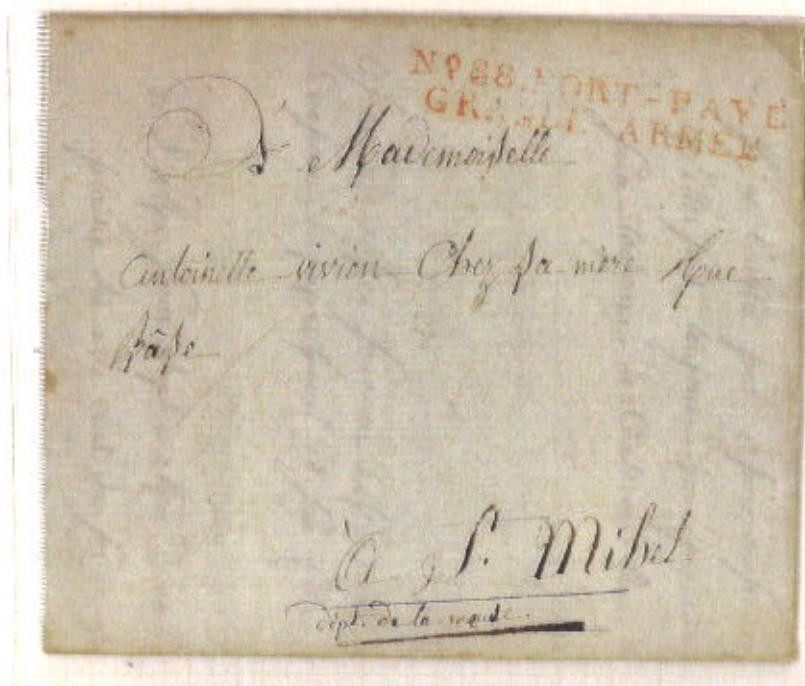 Nº 88. PORT-PAYÉ
GRANDE ARMÉE
A Mademoiselle
antoinette vivion Chez sa mère Rue
basse
à St. Mihel
dépt. de la meuse.